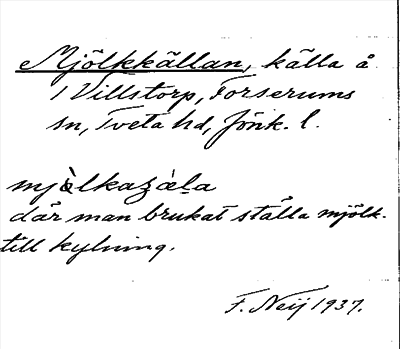 Mjölkkällan, källa å
1 Villstorp, Forserums
sn, Tveta hd, Jönk. l.
mjòlkaʒàl̥a
där man brukat ställa mjölk.
till kylning.
F. Neij 1937.